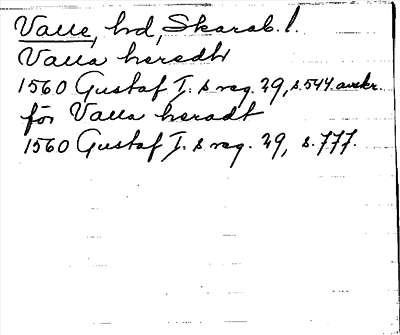 Valle, hd, Skarab. l.
Valla heredt
1560 Gustaf I. s reg. 29, s. 544. avskr.
för Valla heradt
1560 Gustaf I. s reg. 29, s. 777.